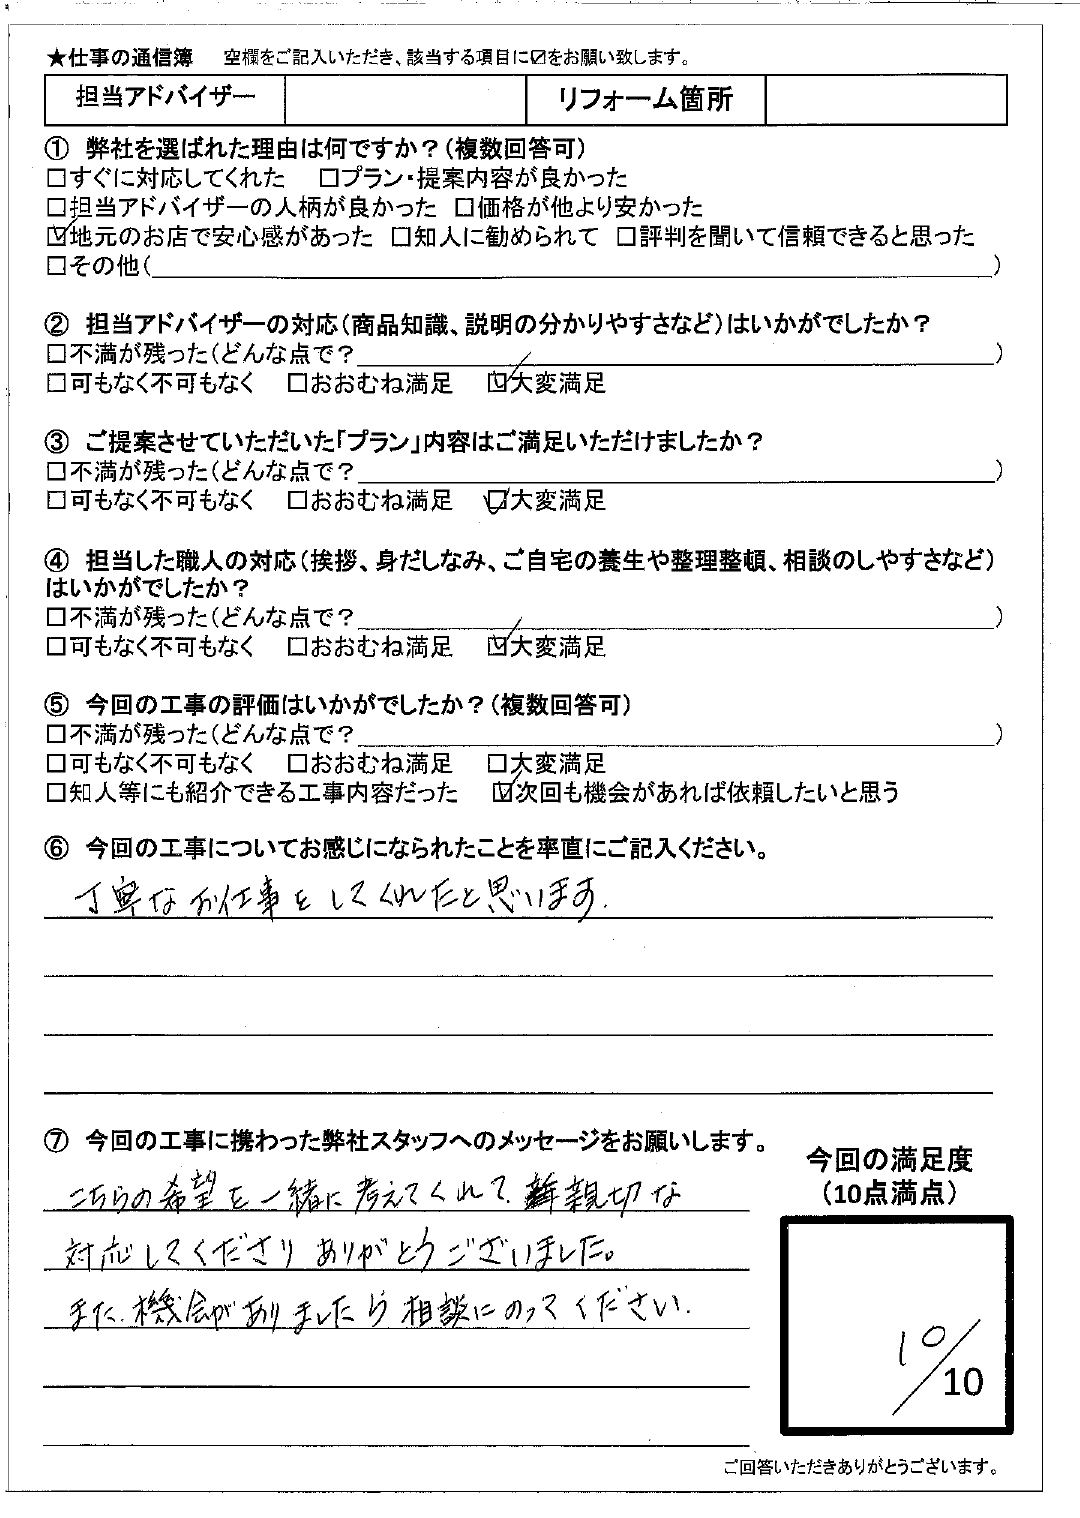 ★仕事の通信簿 空欄をご記入いただき、該当する項目に☑をお願い致します。
担当アドバイザー リフォーム箇所
① 弊社を選ばれた理由は何ですか？（複数回答可）
□すぐに対応してくれた □プラン・提案内容が良かった
□担当アドバイザーの人柄が良かった □価格が他より安かった
☑地元のお店で安心感があった □知人に勧められて □評判を聞いて信頼できると思った
□その他（ ）
② 担当アドバイザーの対応（商品知識、説明の分かりやすさなど）はいかがでしたか？
□不満が残った（どんな点で？ ）
□可もなく不可もなく □おおむね満足 ☑大変満足
③ ご提案させていただいた「プラン」内容はご満足いただけましたか？
□不満が残った（どんな点で？ ）
□可もなく不可もなく □おおむね満足 ☑大変満足
④ 担当した職人の対応（挨拶、身だしなみ、ご自宅の養生や整理整頓、相談のしやすさなど）
はいかがでしたか？
□不満が残った（どんな点で？ ）
□可もなく不可もなく □おおむね満足 ☑大変満足
⑤ 今回の工事の評価はいかがでしたか？（複数回答可）
□不満が残った（どんな点で？ ）
□可もなく不可もなく □おおむね満足 □大変満足
□知人等にも紹介できる工事内容だった ☑次回も機会があれば依頼したいと思う
⑥ 今回の工事についてお感じになられたことを率直にご記入ください。
丁寧なお仕事をしてくれたと思います.
⑦ 今回の工事に携わった弊社スタッフへのメッセージをお願いします。
こちらの希望を一緒に考えてくれて、親切な
対応してくださりありがとうございました。
また、機会がありましたら相談にのってください.
今回の満足度
（10点満点）
10/10
ご回答いただきありがとうございます。